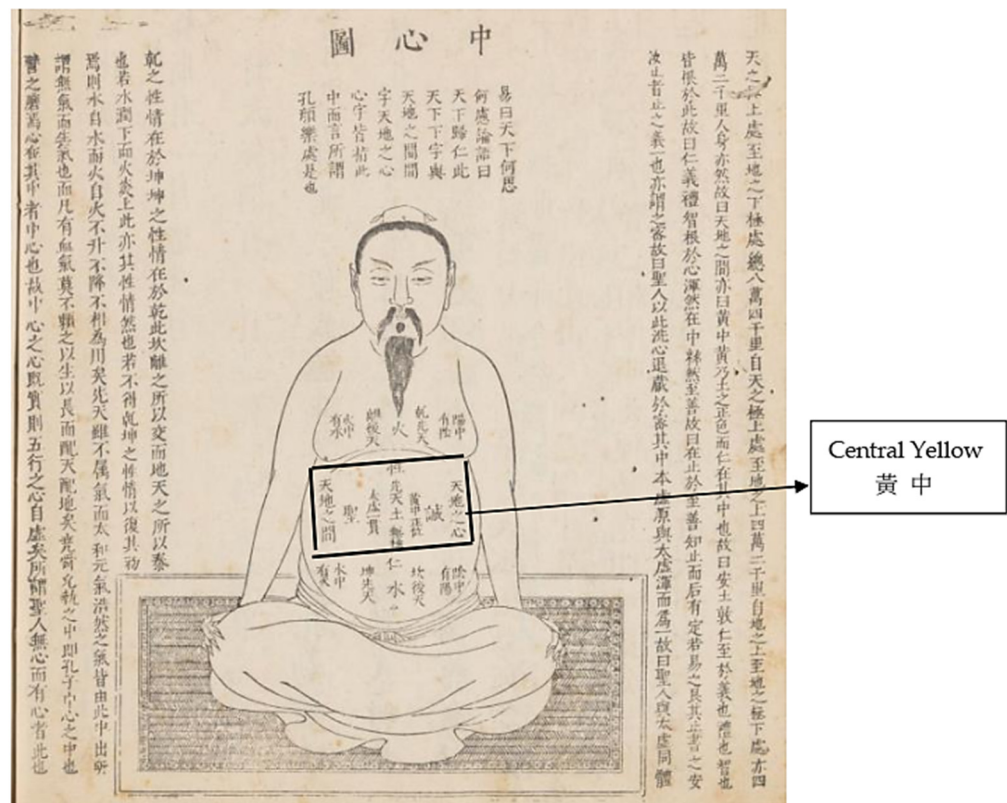 中心圖
天之極上處至地之下極處總八萬四千里自天之極上處至地之上四萬二千里自地之上至地之極下處亦四
萬二千里人身亦然故曰天地之間亦曰黃中黃乃土之正色而仁在其中也故曰安土敦仁至於義也禮也智也
皆根於此故曰仁義禮智根於心渾然在中粹然至善故曰在止於至善知止而后有定若易之艮其止書之安
汝止者止之義一也亦謂之密故曰聖人以此洗心退藏於密其中本虛原與太虛渾而爲一故曰聖人與太虛同體
易曰天下何思
何慮論語曰
天下歸仁此
天下下字與
天地之間間
字天地之心
心字皆指此
中而言所謂
孔顏樂處是也
陽中有陰
乾先天
火
離後天
火中有水
性
天地之心
誠
黃中正位
先天土無極
太虛一貫
聖
天地之間
仁
陰中有陽
坎後天
水
坤先天
水中有火
乾之性情在於坤坤之性情在於乾此坎離之所以交而地天之所以泰
也若水潤下而火炎上此亦其性情然也若不得乾坤之性情以復其初
焉則水自水而火自火不升不降不相為用矣先天雖不屬氣而太和元氣浩然之氣皆由此中出所
謂無氣而生氣也而凡有血氣莫不賴之以生以長而配天配地矣堯舜允執之中即孔子中心之中也
譬之磨焉心在其中者中心也故中心之心既實則五行之心自虛矣所謂聖人無心而有心者此也
Central Yellow
黃中